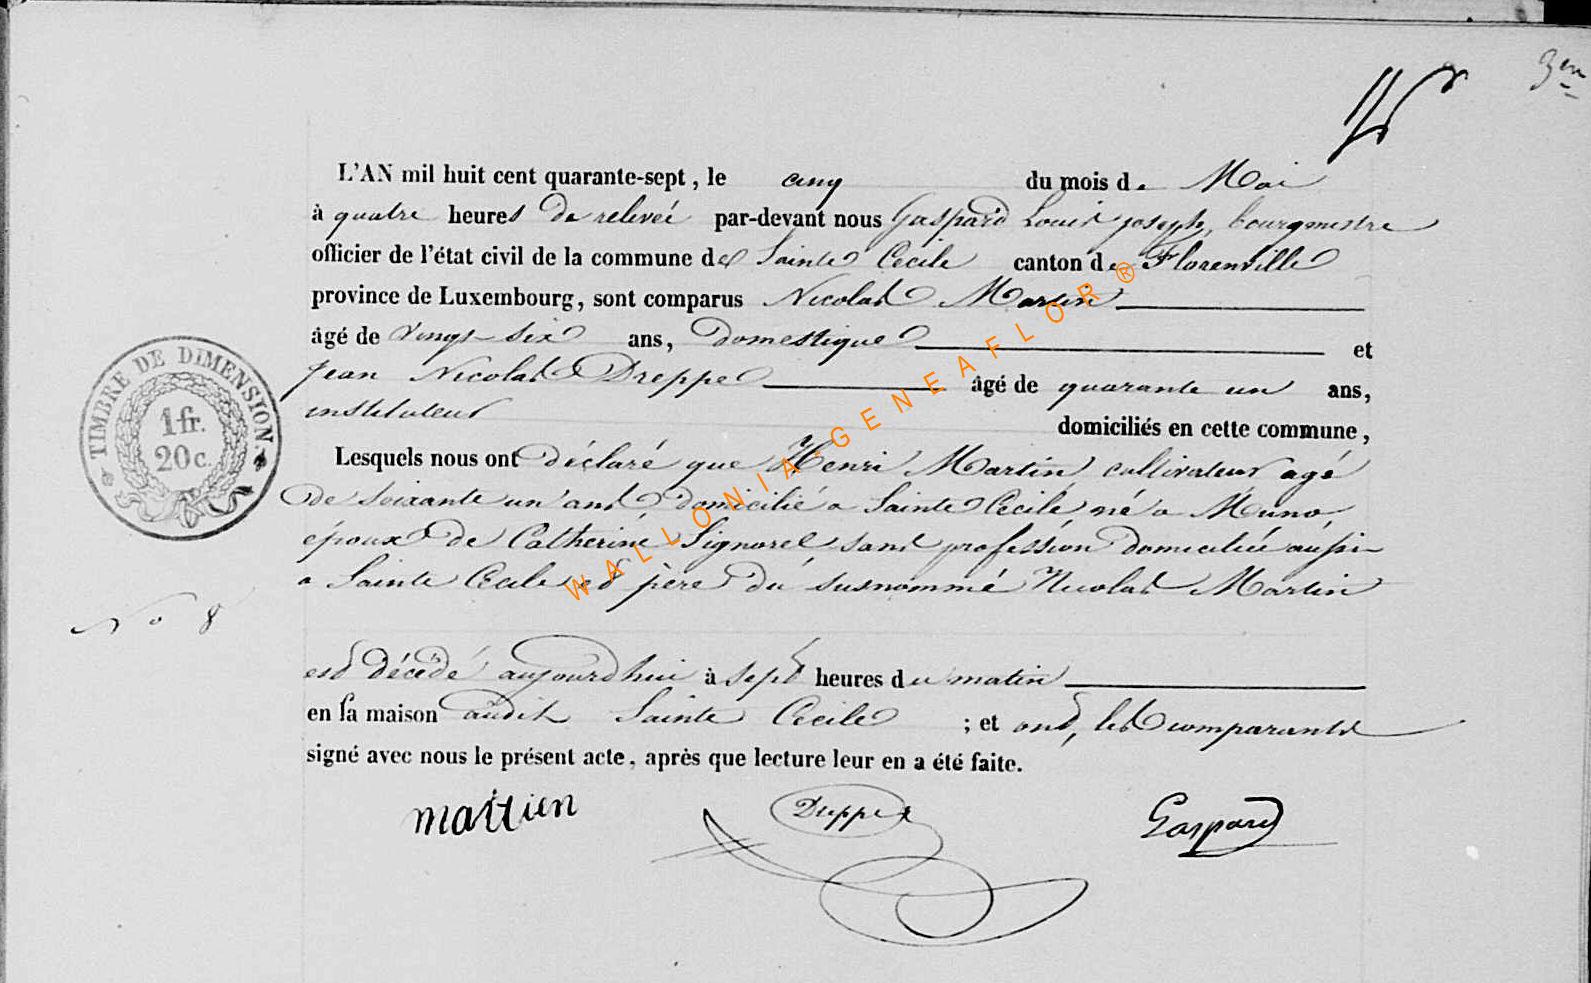 3em
L'AN mil huit cent quarante-sept, le cinq du mois de Mai
à quatre heures de relevée par-devant nous Gaspard Louis joseph, bourgmestre
officier de l'état civil de la commune de Sainte Cecile canton de Florenville
province de Luxembourg, sont comparus Nicolas Martin
âgé de vingt-six ans, domestique et
jean Nicolas Dreppe âgé de quarante un ans,
instituteur
domiciliés en cette commune,
Lesquels nous ont déclaré que Henri Martin cultivateur agé
de soixante un ans domicilié a Sainte Cecile né a Muno,
époux de Catherine Signorel, sans profession domiciliée aussi
a Sainte Cecile et père du susnommé Nicolas Martin
No 8
est décédé aujourd'hui à sept heures du matin
en sa maison audit Sainte Cecile ; et ont, les comparants
signé avec nous le présent acte, après que lecture leur en a été faite.
mattien Dreppe Gaspard
TIMBRE DE DIMENSION.
1 fr.
20 c.
WALLONIA-GENEAFLOR®